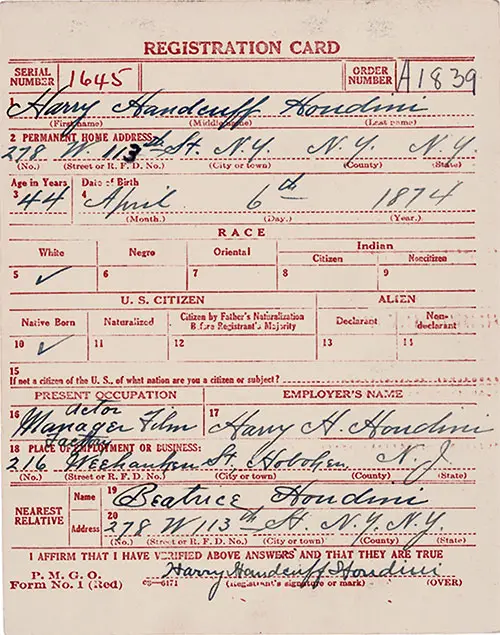 REGISTRATION CARD
SERIAL NUMBER 1645 ORDER NUMBER A1839
1 Harry Handcuff Houdini
(First name) (Middle name) (Last name)
2 PERMANENT HOME ADDRESS:
278 W. 113th St. N.Y. N.Y. N.Y.
(No.) (Street or R. F. D. No.) (City or town) (County) (State)
Age in Years Date of Birth
3 44 4 April 6th 1874
(Month.) (Day.) (Year.)
RACE
White Negro Oriental Indian
Citizen Noncitizen
5 ✓ 6 7 8 9
U. S. CITIZEN ALIEN
Native Born Naturalized Citizen by Father's Naturalization Before Registrant's Majority Declarant Non-declarant
10 ✓ 11 12 13 14
15
If not a citizen of the U. S., of what nation are you a citizen or subject?
PRESENT OCCUPATION EMPLOYER'S NAME
16 Actor Manager Film Factory 17 Harry H. Houdini
18 PLACE OF EMPLOYMENT OR BUSINESS:
216 Weehauken St. Hoboken N.J.
(No.) (Street or R. F. D. No.) (City or town) (County) (State)
NEAREST RELATIVE Name 19 Beatrice Houdini
Address 20 278 W 113th St. N.Y. N.Y.
(No.) (Street or R. F. D. No.) (City or town) (County) (State)
I AFFIRM THAT I HAVE VERIFIED ABOVE ANSWERS AND THAT THEY ARE TRUE
P. M. G. O.
Form No. 1 (Red) 6171 Harry Handcuff Houdini
(Registrant's signature or mark) (OVER)